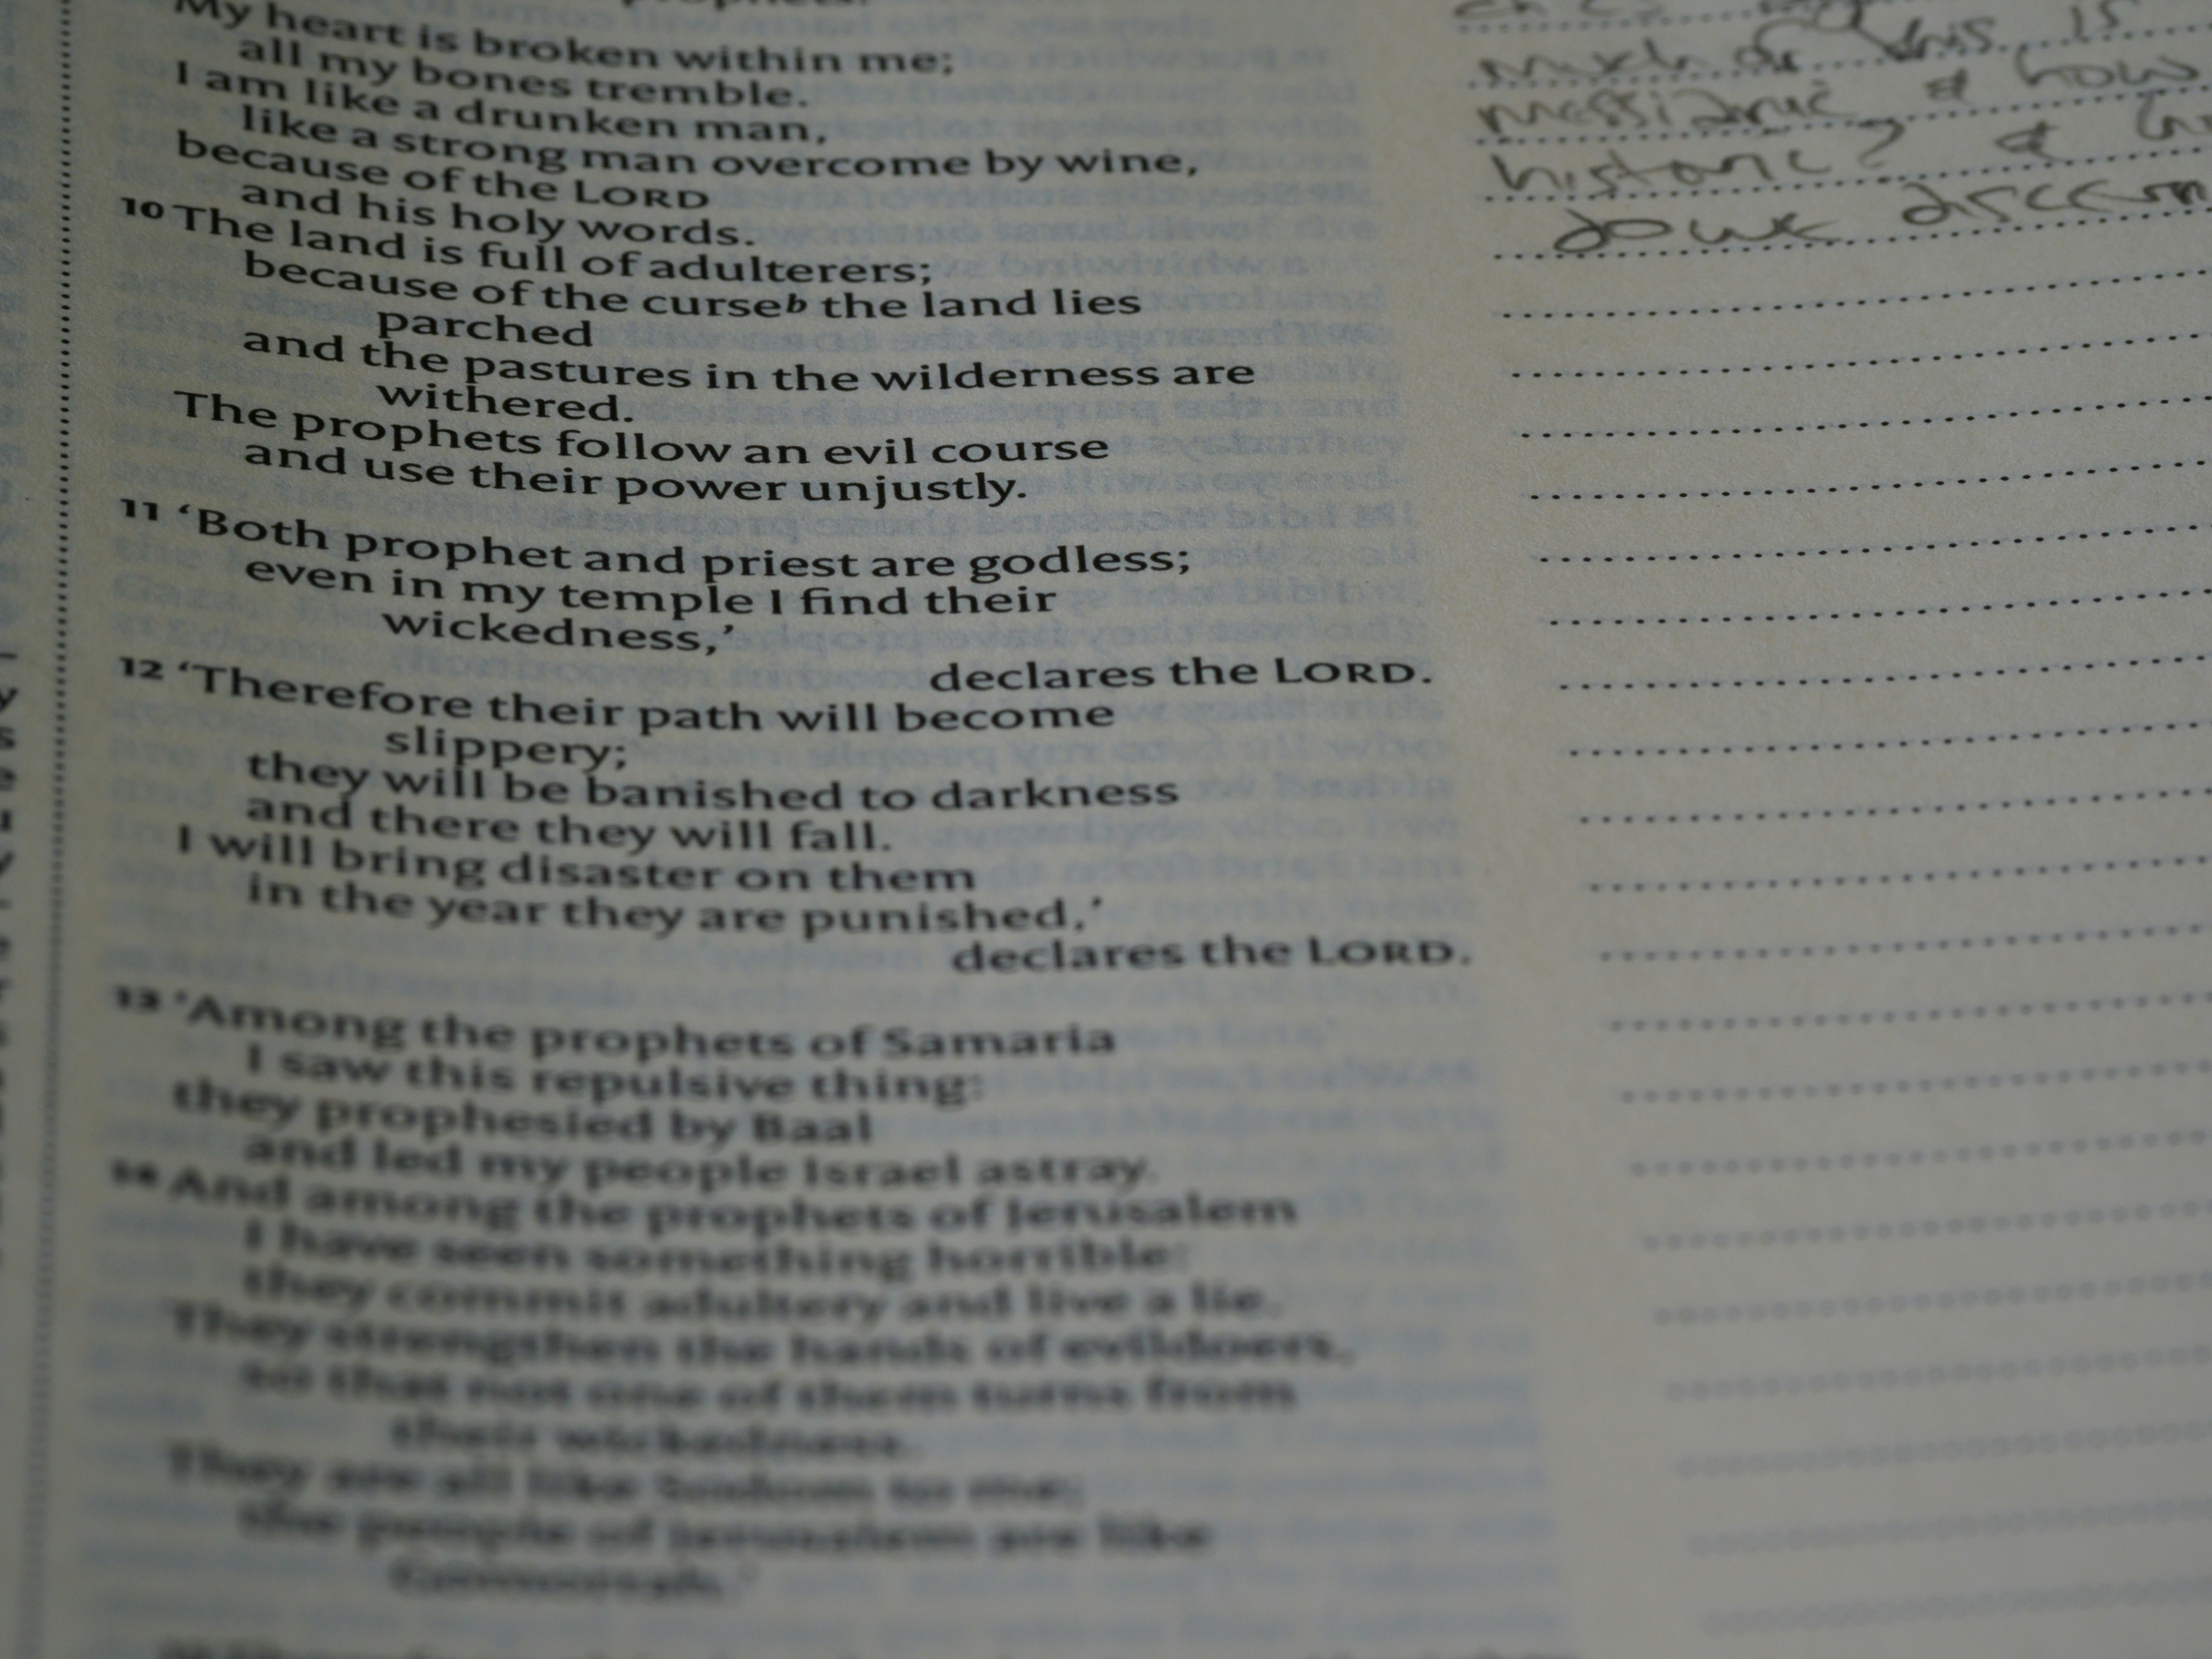 My heart is broken within me;
all my bones tremble.
I am like a drunken man,
like a strong man overcome by wine,
because of the LORD
and his holy words.
10 The land is full of adulterers;
because of the curseb the land lies
parched
and the pastures in the wilderness are
withered.
The prophets follow an evil course
and use their power unjustly.
11 ‘Both prophet and priest are godless;
even in my temple I find their
wickedness,’
declares the LORD.
12 ‘Therefore their path will become
slippery;
they will be banished to darkness
and there they will fall.
I will bring disaster on them
in the year they are punished,’
declares the LORD.
13 ‘Among the prophets of Samaria
I saw this repulsive thing:
they prophesied by Baal
and led my people Israel astray.
14 And among the prophets of Jerusalem
I have seen something horrible:
they commit adultery and live a lie.
They strengthen the hands of evildoers,
so that not one of them turns from
their wickedness.
They are all like Sodom to me;
the people of Jerusalem are like
Gomorrah.’
much of this is
messianic & how
historic? &